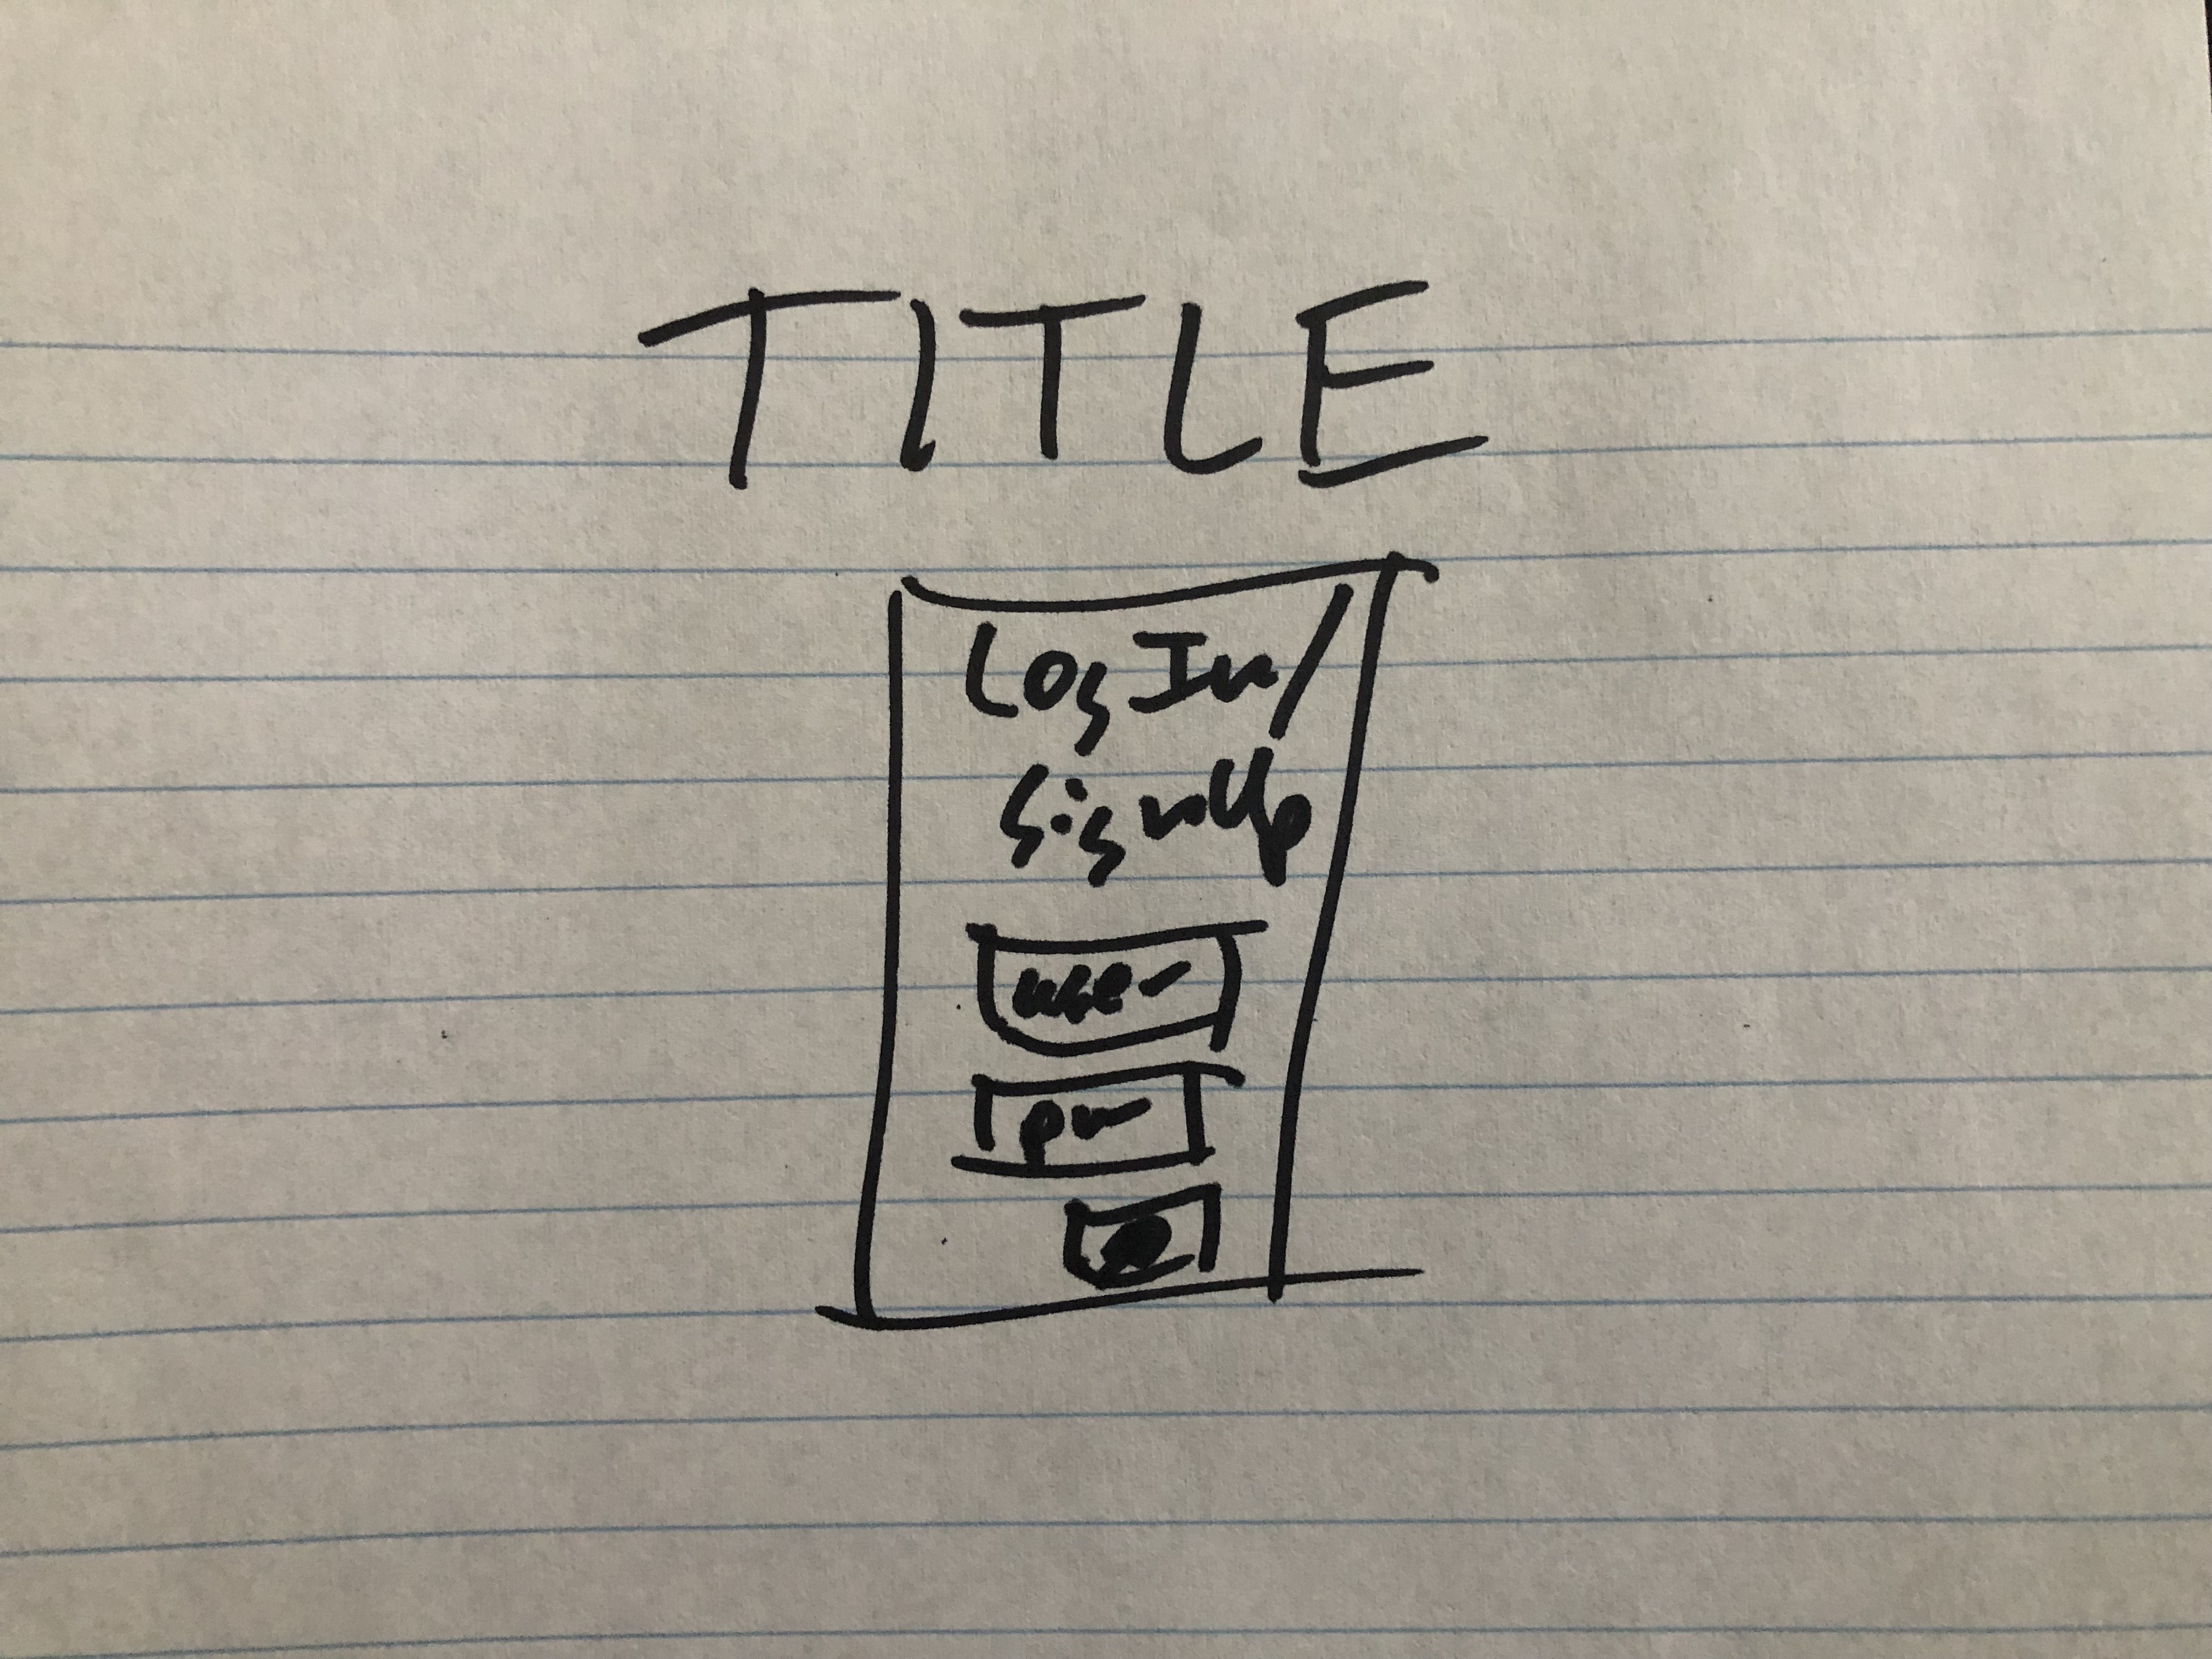 TITLE
Log In/
Sign Up
user
pw